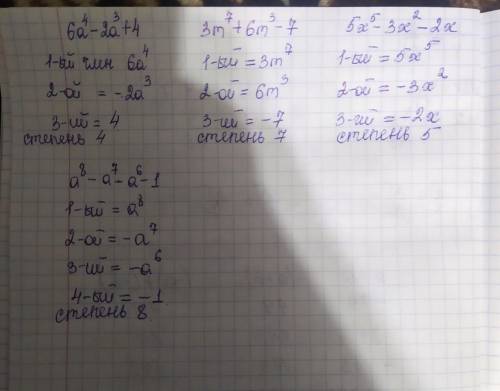 6a⁴-2a³+4
1-ый член 6a⁴
2-ой = -2a³
3-ий = 4
степень 4
3m⁷+6m³-7
1-ый = 3m⁷
2-ой = 6m³
3-ий = -7
степень 7
5x⁵-3x²-2x
1-ый = 5x⁵
2-ой = -3x²
3-ий = -2x
степень 5
a⁸-a⁷-a⁶-1
1-ый = a⁸
2-ой = -a⁷
3-ий = -a⁶
4-ый = -1
степень 8